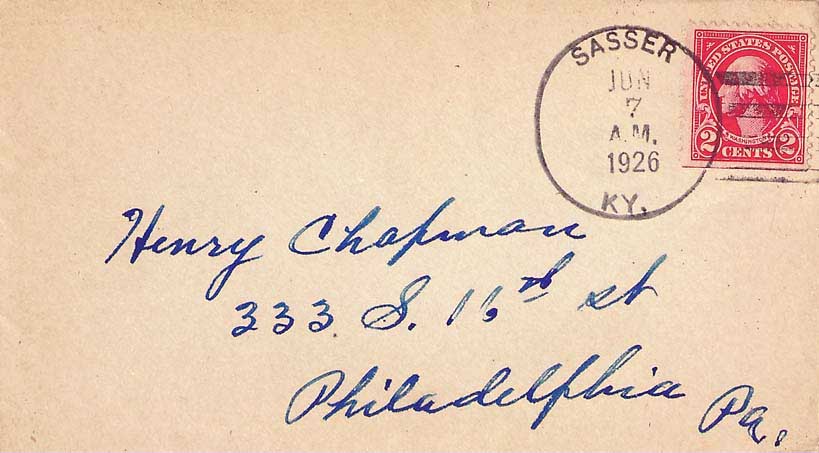 SASSER
JUN
7
A.M.
1926
KY.
UNITED STATES POSTAGE
WASHINGTON
2 CENTS 2
Henry Chapman
333 S. 16th st
Philadelphia Pa.